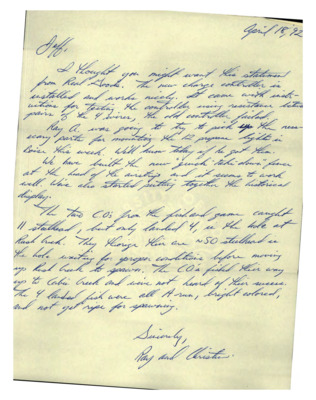 April 18, '92
Jeff,
I thought you might want this statement
from Real Goods. The new charge controller is
installed and works nicely. It came with instr-
uctions for testing the controller using resistance between
pairs of the 4 wires, the old controller failed.
Ray A. was going to try to pick up the neces-
sary parts for mounting the 12
this week.
We have built the new "quick take down" fence
at the head of the and it seems to work
well. We've also started putting together the historical
display.
The two COs from the fish and game caught
11 steelhead, but only landed 4, in the hole at
Rush Creek. They there are ≈50 steelhead in
the hole waiting for proper conditions before moving
up Rush Creek to spawn. The COs fished their way
up to Creek and we've not heard of their success.
The 4 landed fish were all A run, bright colored,
and not yet ripe for spawning.
Sincerely,
Ray and Christine